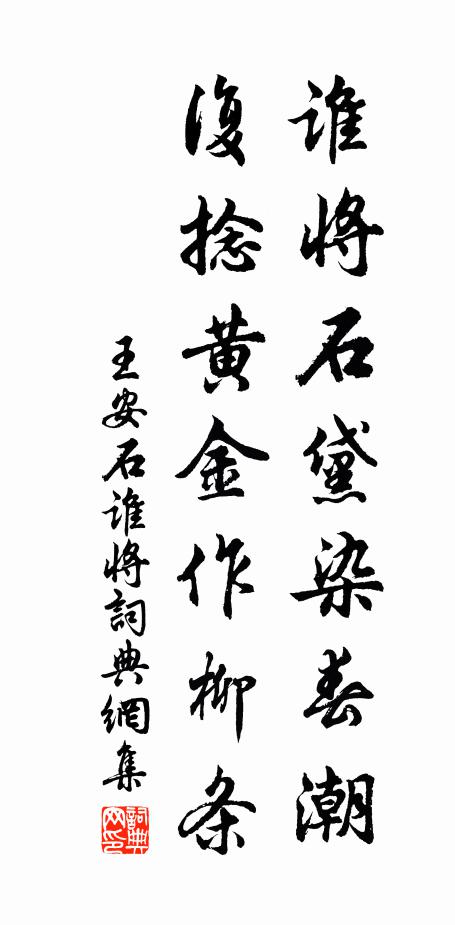 谁将石黛染春潮
復捻黄金作柳条
王安石谁将詞典網集
詞典
网印